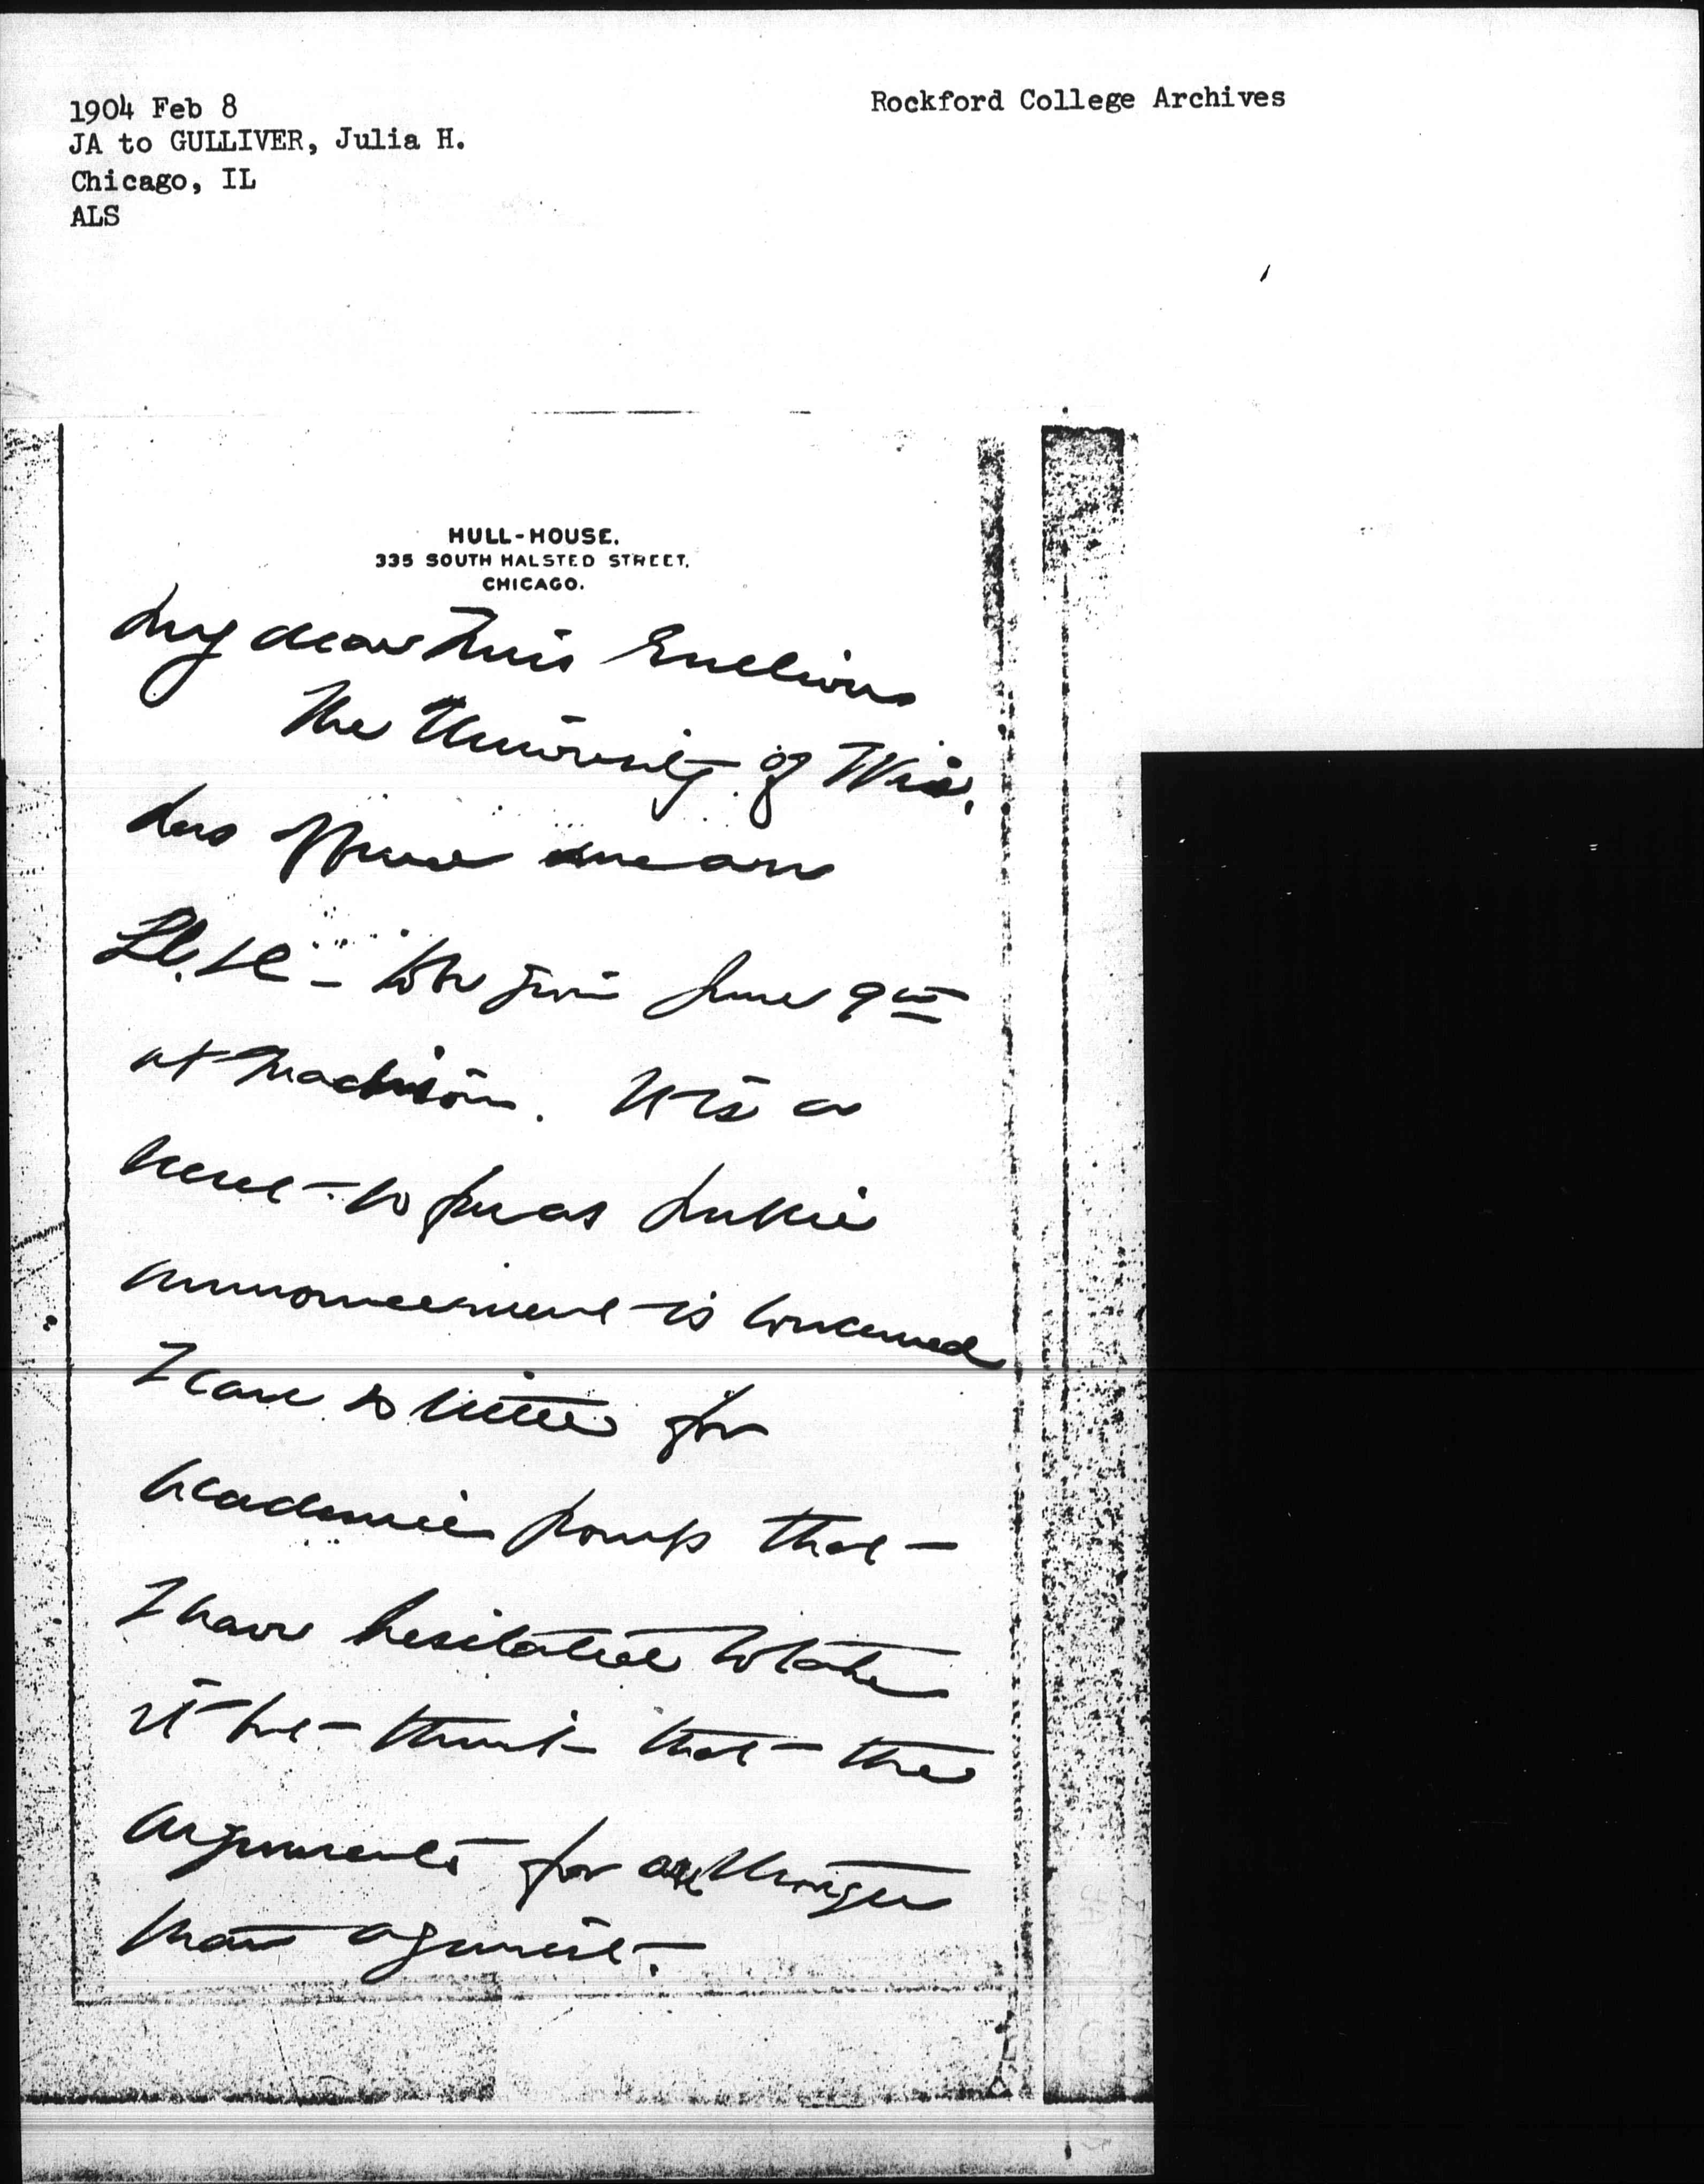 1904 Feb 8
JA to GULLIVER, Julia H.
Chicago, IL
ALS
Rockford College Archives
HULL-HOUSE.
335 SOUTH HALSTED STREET,
CHICAGO.
My dear Miss Gulliver
The University of Wis.
has offered me an
LL.D - to be given June 9th
at Madison. It is a
secret - so far as public
announcement is concerned
I care so little for
academic pomp that
I have hesitated to take
it but think that the
arguments for are stronger
than against.